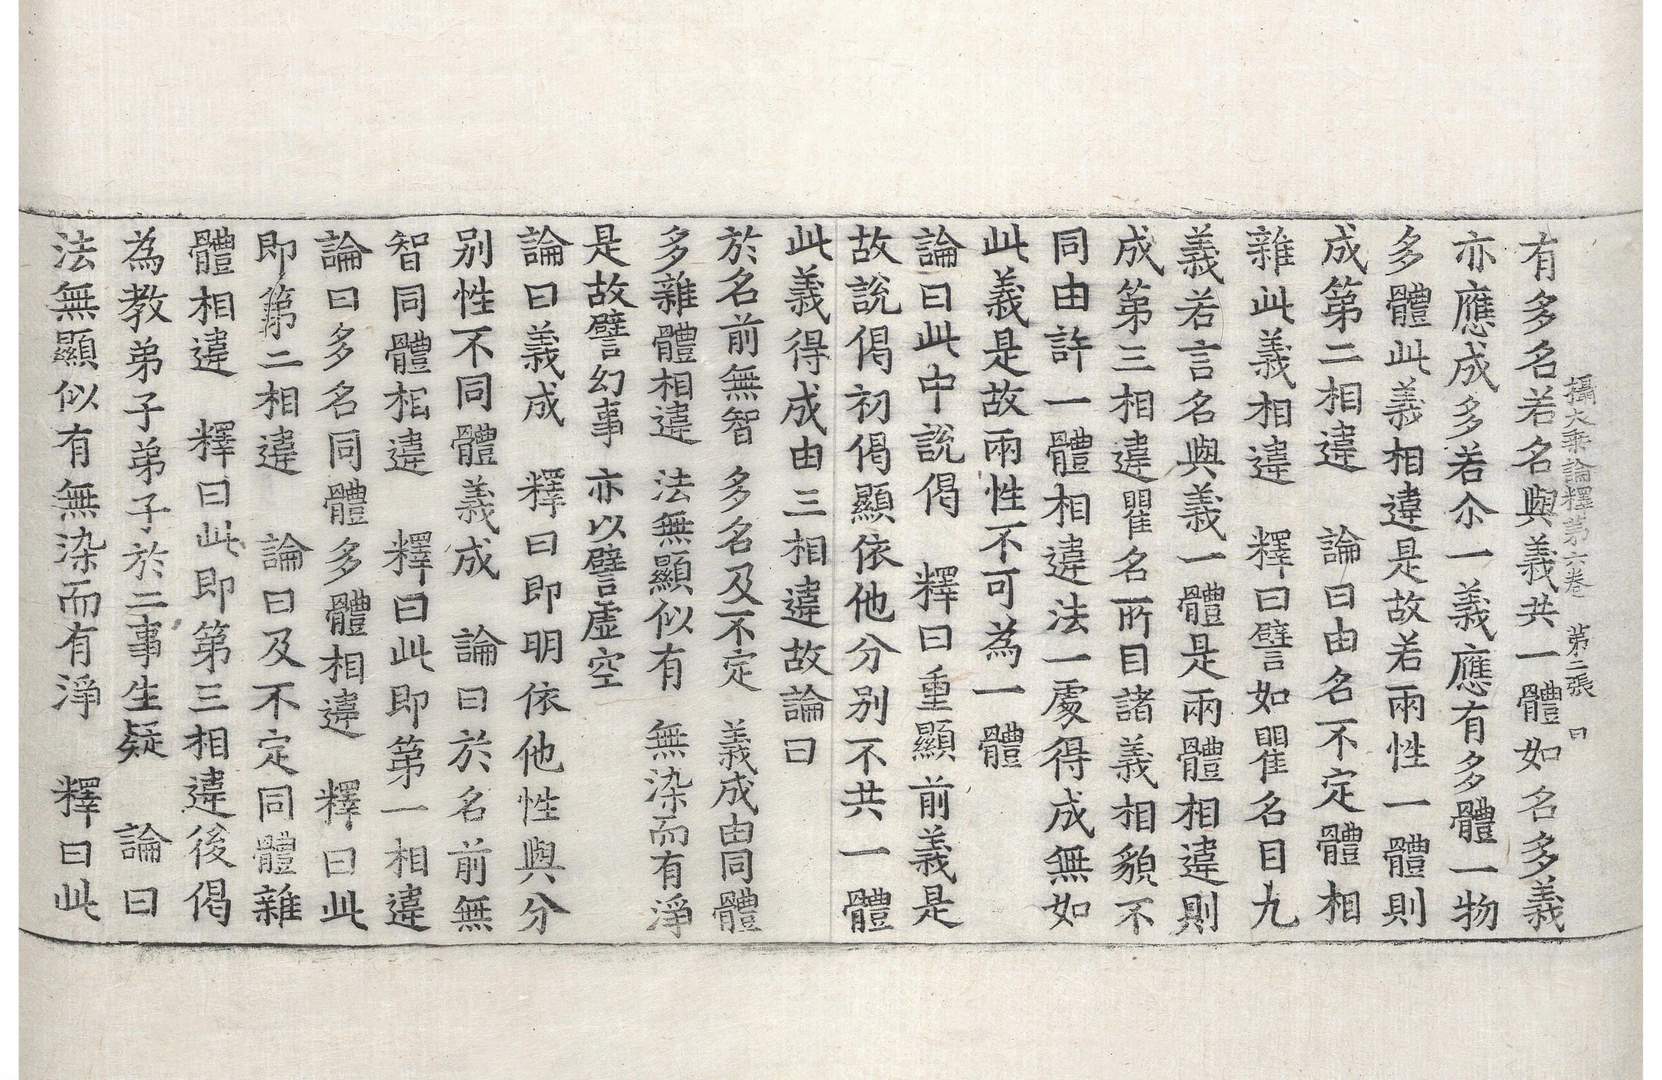 攝大乘論釋第六卷　第二張　曰
有多名若名與義共一體如名多義
亦應成多若尒一義應有多體一物
多體此義相違是故若兩性一體則
成第二相違　論曰由名不定體相
雜此義相違　釋曰譬如瞿名目九
義若言名與義一體是兩體相違則
成第三相違瞿名所目諸義相貌不
同由許一體相違法一處得成無如
此義是故兩性不可為一體
論曰此中說偈　釋曰重顯前義是
故說偈初偈顯依他分別不共一體
此義得成由三相違故論曰
於名前無智　多名及不定　義成由同體
多雜體相違　法無顯似有　無染而有淨
是故譬幻事　亦以譬虛空
論曰義成　釋曰即明依他性與分
別性不同體義成　論曰於名前無
智同體相違　釋曰此即第一相違
論曰多名同體多體相違　釋曰此
即第二相違　論曰及不定同體雜
體相違　釋曰此即第三相違後偈
為教弟子弟子於二事生疑　論曰
法無顯似有無染而有淨　釋曰此